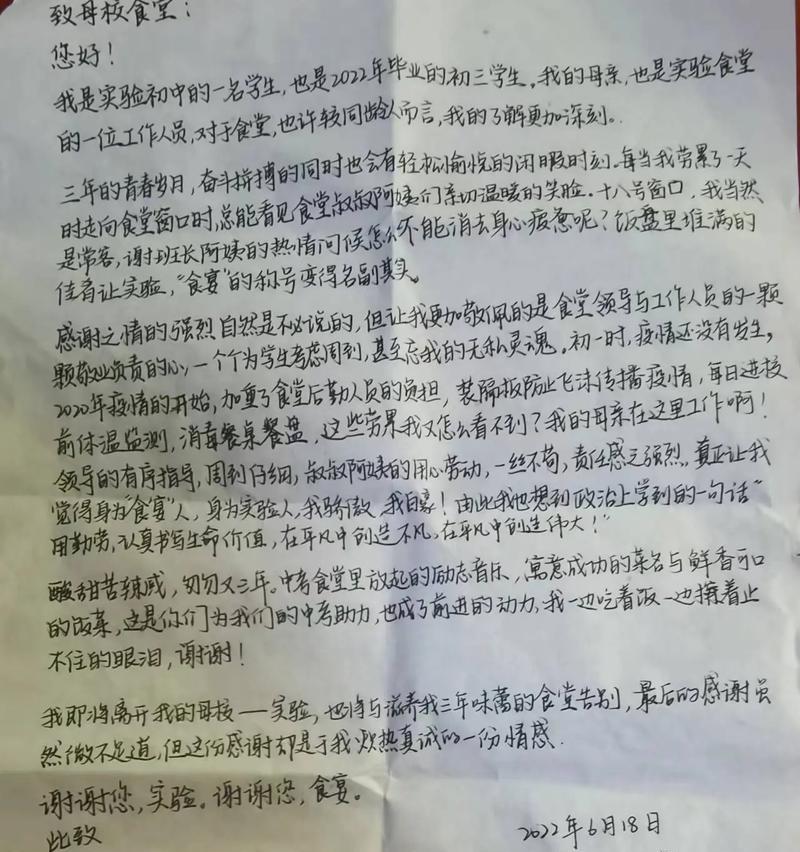 致母校食堂：
您好！
我是实验初中的一名学生，也是2022年毕业的初三学生。我的母亲，也是实验食堂
的一位工作人员，对于食堂，也许较同龄人而言，我的了解更加深刻。
三年的青春岁月，奋斗拼搏的同时也会有轻松愉悦的闲暇时刻。每当我劳累了一天
时走向食堂窗口时，总能看见食堂叔叔阿姨们亲切温暖的笑脸。十八号窗口，我当然
是常客，谢班长阿姨的热情问候怎么不能消去身心疲惫呢？饭盘里堆满的
佳肴让实验，“食宴”的称号变得名副其实。
感谢之情的强烈自然是不必说的，但让我更加敬佩的是食堂领导与工作人员的一颗
颗敬业负责的心，一个个为学生考虑周到，甚至忘我的无私灵魂。初一时，疫情还没有发生。
2020年疫情的开始，加重了食堂后勤人员的负担，装隔板防止飞沫传播疫情，每日进校
前体温监测，消毒餐桌餐盘，这些劳累我又怎么看不到？我的母亲在这里工作啊！
领导的有序指导，周到仔细，叔叔阿姨的用心劳动，一丝不苟，责任感之强烈，真正让我
觉得身为“食宴”人，身为实验人，我骄傲，我自豪！由此我也想到政治上学到的一句话“
用勤劳，认真书写生命价值，在平凡中创造不凡，在平凡中创造伟大！”
酸甜苦辣咸，匆匆又三年。中考食堂里放起的励志音乐，寓意成功的菜名与鲜香可口
的饭菜，这是你们为我们的中考助力，也成了前进的动力，我一边吃着饭一边擦着止
不住的眼泪，谢谢！
我即将离开我的母校——实验，也将与滋养我三年味蕾的食堂告别，最后的感谢虽
然微不足道，但这份感谢却是于我炽热真诚的一份情感.
谢谢您，实验。谢谢您，食宴。
此致
2022年6月18日